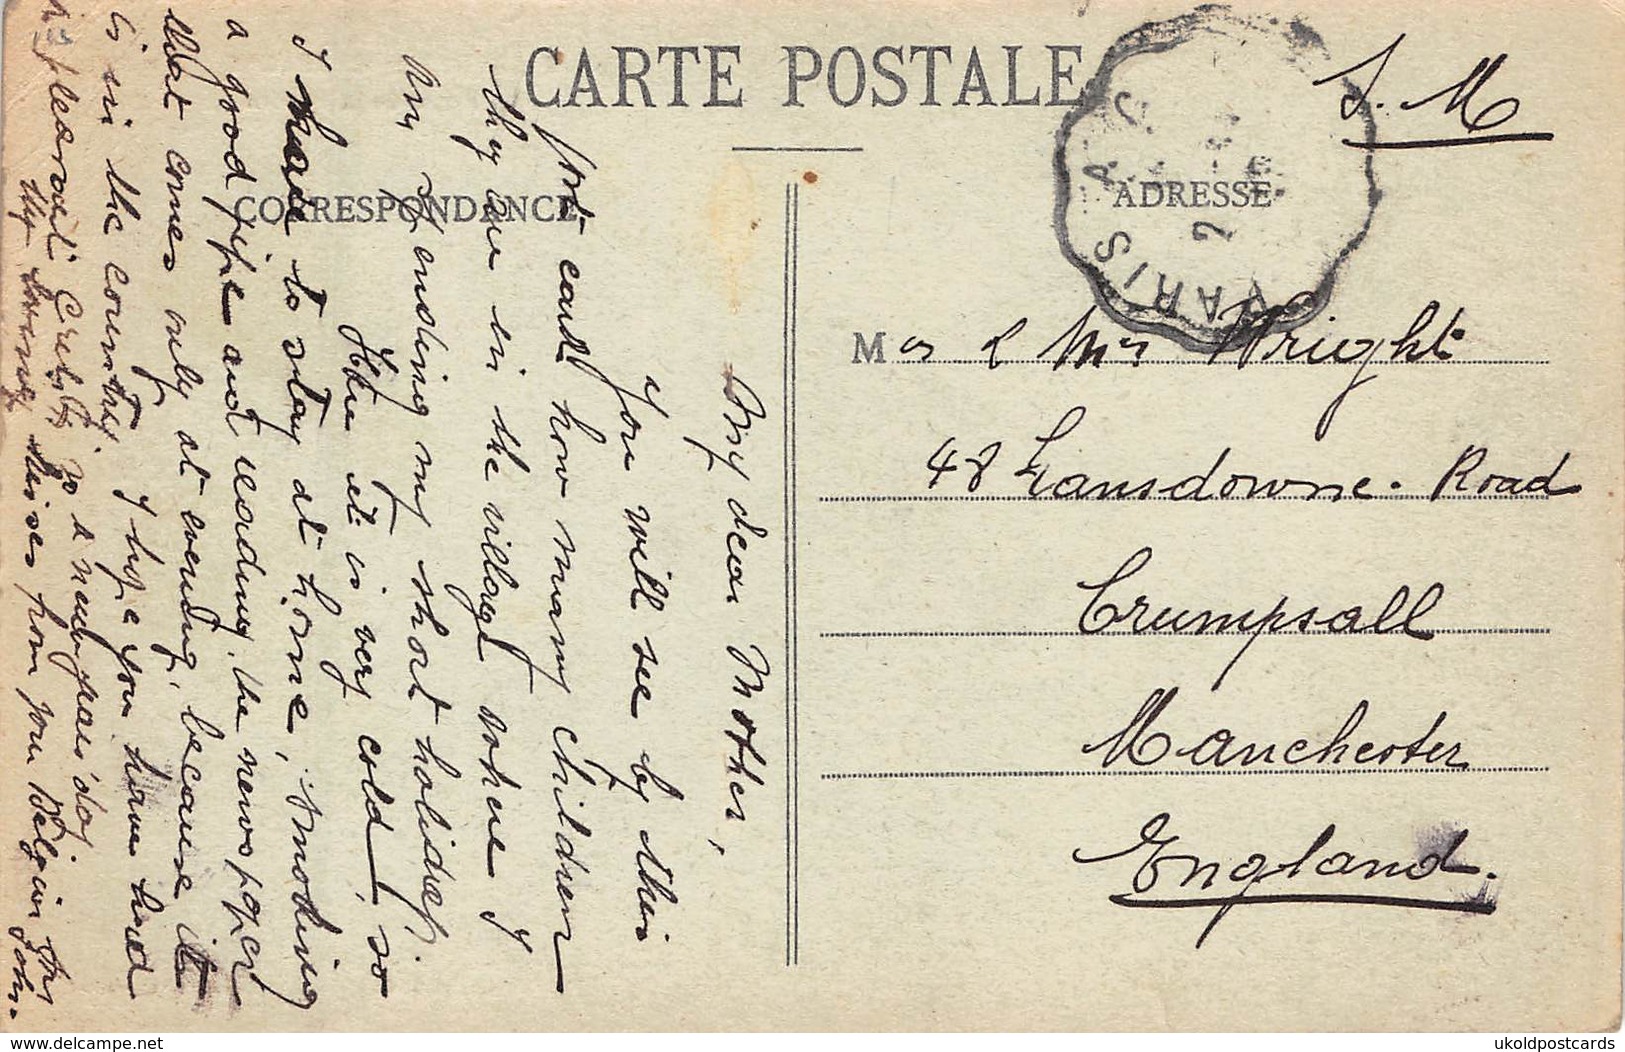 CARTE POSTALE
CORRESPONDANCE
ADRESSE
PARIS
S. M
Mr & Mrs Wright
48 Lansdowne. Road
Crumpsall
Manchester
England.
My dear Mother,
You will see by this
post card how many children
they are in the village where I
am spending my short holiday.
Here it is very cold, so
I have to stay at home, smoking
a good pipe and reading the newspaper
that comes only at evening, because it
is in the country. I hope you have had
a pleasant and a new year's day
My loving kisses from your Belgian
John.
delcampe.net
ukoldpostcards